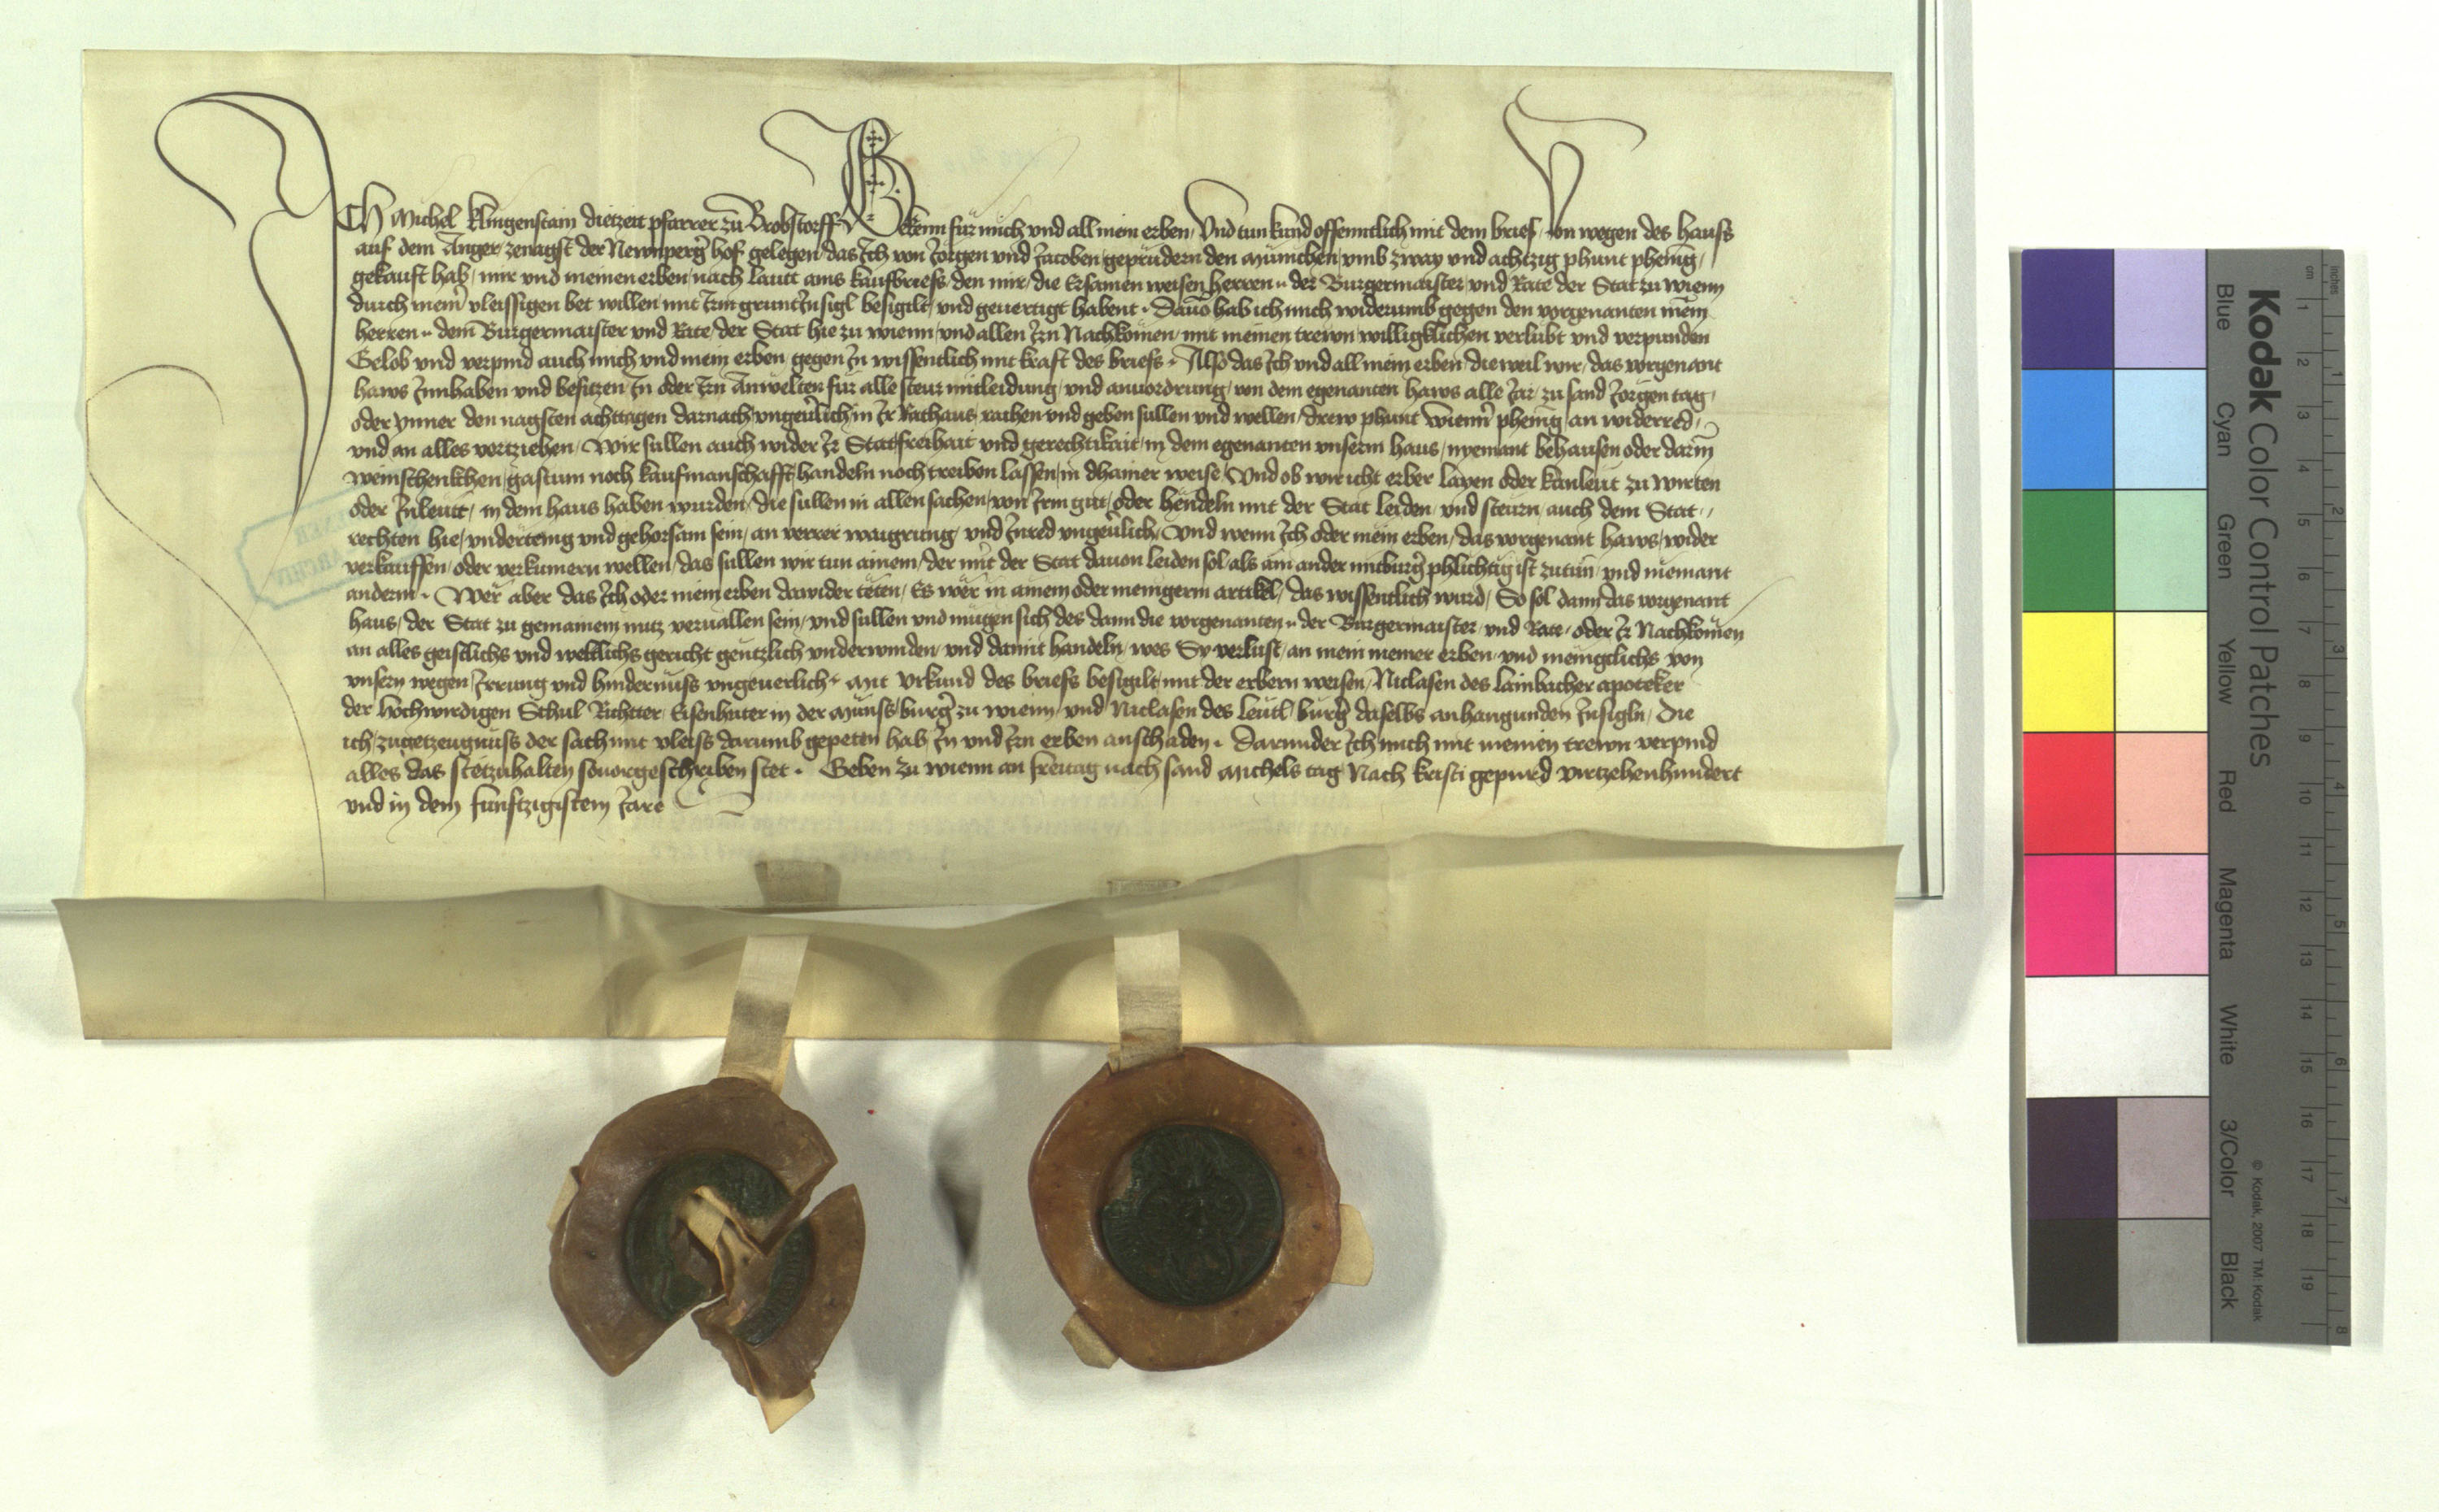 ICH Michel Klingenstain dietzeit pfarrer zu Probstorff Bekenn für mich vnd all mein erben Vnd tun kund offenntlich mit dem brief Von wegen des hauss
auf dem Anger zenagst der Newnperger hof gelegen das Ich von Jorgen vnd Jacoben geprüdern den Münichen vmb zway vnd achtzig phunt phenig
gekauft hab mir vnd meinen erben nach lautt ains kaufbriefs den mir die Ersamen weisen herren der Burgermaister vnd Rate der Stat zu wienn
durch meiner vleissigen bet willen mit Irm grunt Insigl besigilt vnd geuertigt habent Dauon hab ich mich widerumb gegen den vorgenanten mein
herren dem Burgermaister vnd Rate der Stat hie zu wienn vnd allen Irn Nachkomen mit meinen trewn willigklichen verlubt vnd verpunden
Gelob vnd verpind auch mich vnd mein erben gegen In wissentlich mit kraft des briefs Also das Ich vnd all mein erben dieweil wir das vorgenant
haws Innhaben vnd besitzen In oder Irn Anwelten für alle steur mitleidung vnd anuordrung von dem egenanten haws alle Jar zu sand Jorgen tag
oder ynner den nagsten achttagen darnach vngeuerlich in Ir Rathaus raihen vnd geben sullen vnd wellen drew phunt wienner phenig an widerred
vnd an alles vertziehen Wir sullen auch wider Ir Statfreihait vnd gerechtikait in dem egenanten vnserm haus nyemant behausen oder darin
weinschenkchen gastum noch kaufmanschafft handeln noch treiben lassen in dhainer weise Vnd ob wir icht erber layen oder kaufleut zu wirten
oder Inleutt in dem haus haben wurden die sullen in allen sachen von Irm gut oder hendeln mit der Stat leiden vnd steurn auch dem Stat
rechten hie vndertenig vnd gehorsam sein an verrer waigrung vnd Inred vngeuerlich Vnd wenn Ich oder mein erben das vorgenant haws wider
verkauffen oder verkumern wellen das sullen wir tun ainem der mit der Stat dauon leiden sol als ain ander mitburger phlichtig ist zutun vnd niemant
anderm Wer aber das Ich oder mein erben dawider teten Es wer in ainem oder menigerm artikel das wissentlich wurd So sol dann das vorgenant
haus der Stat zu gemainem nutz veruallen sein vnd sullen vnd mugen sich des dann die vorgenanten der Burgermaister vnd Rate oder Ir Nachkomen
an alles geistlichs vnd weltlichs gericht gentzlich vnderwinden vnd damit handeln wes Sy verlust an mein meiner erben vnd menigclichs von
vnsern wegen Irrung vnd hindernüss vngeuerlich Mit vrkund des briefs besigilt mit der erbern weisen Niclasen des Lainbacher apoteker
der Hochwirdigen Schul Richtter Eisenhuter in der Munss burger zu wienn vnd Niclasen des Leutl burger daselbs anhangunden Insigln Die
ich zugetzeugnüss der sach mit vleiss darumb gepeten hab In vnd Irn erben anschaden Darunder Ich mich mit meinen trewn verpind
alles das stetzuhalten souorgeschriben stet Geben zu wienn an freitag nach sand Michels tag Nach kristi gepurd virtzehenhundert
vnd in dem funftzigistem Jare
Kodak Color Control Patches
Blue Cyan Green Yellow Red Magenta White 3/Color Black
cm 1 2 3 4 5 6 7 8 9 10 11 12 13 14 15 16 17 18 19
inches 1 2 3 4 5 6 7 8
© Kodak, 2007 TM: Kodak